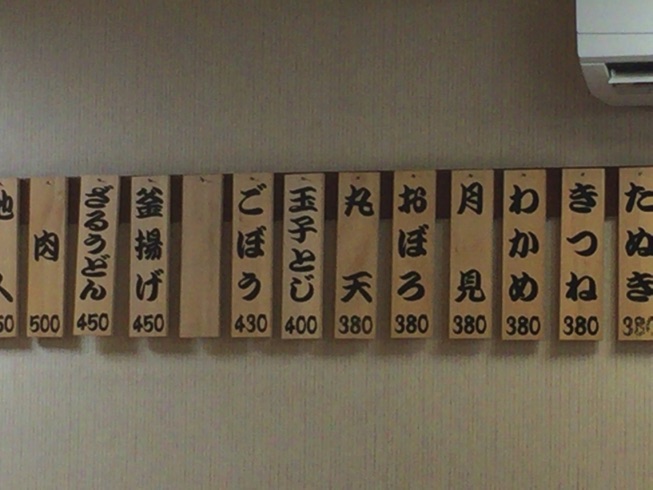 たぬき
380
きつね
380
わかめ
380
月見
380
おぼろ
380
丸天
380
玉子とじ
400
ごぼう
430
釜揚げ
450
ざるうどん
450
肉
500